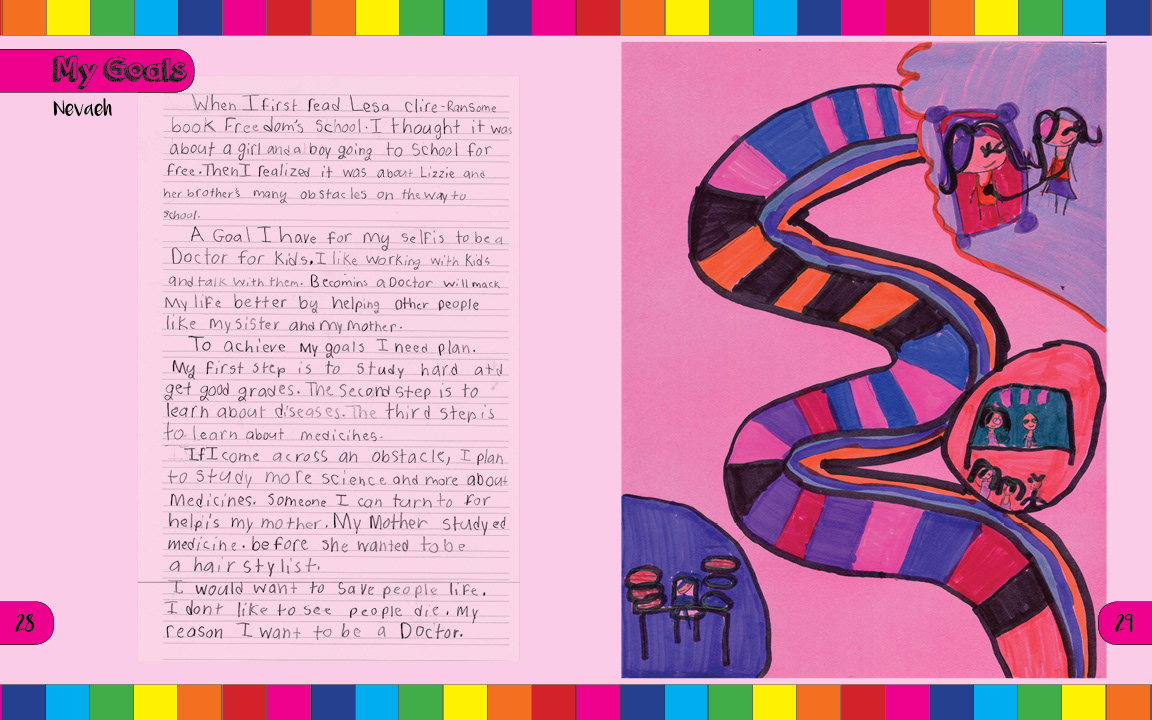 My Goals
Nevaeh
When I first read Lesa Clire-Ransome
book Freedom's School. I thought it was
about a girl and a boy going to School for
free. Then I realized it was about Lizzie and
her brother's many obstacles on the way to
school.
A Goal I have for my self is to be a
Doctor for Kids. I like working with Kids
and talk with them. Becoming a Doctor will mack
My life better by helping other people
like my sister and my mother.
To achieve My goals I need plan.
My first step is to study hard and
get good grades. The Second step is to
learn about diseases. The third step is
to learn about medicines.
If I come across an obstacle, I plan
to study more science and more about
Medicines. Someone I can turn to for
help is my mother. My Mother studyed
medicine. before she wanted to be
a hair stylist.
I would want to save people life.
I dont like to see people die. My
reason I want to be a Doctor.
28
29